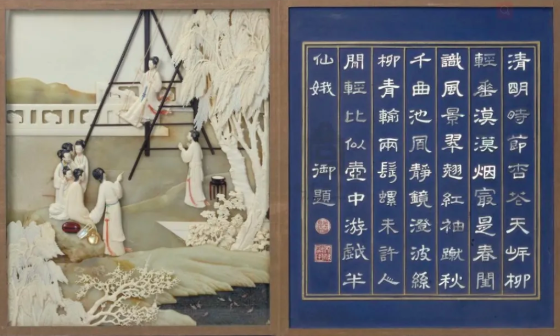 清明時節杏花天岍柳
輕垂漠漠烟最是春閨
識風景翠翹紅袖蹴秋
千曲池風靜鏡澄波絲
柳青輪兩髩螺未許人
閒輕比似壺中游戲半
仙娥 御題